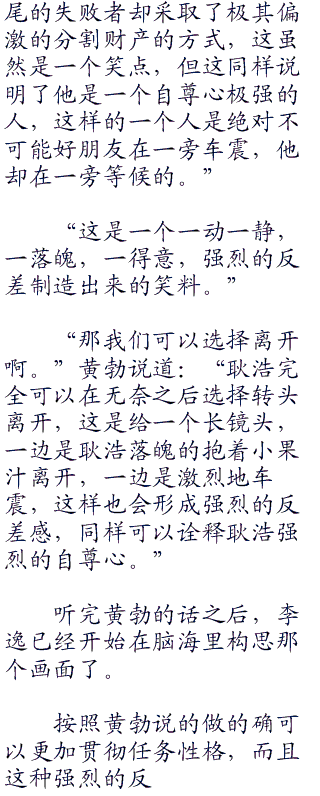 尾的失败者却采取了极其偏
激的分割财产的方式，这虽
然是一个笑点，但这同样说
明了他是一个自尊心极强的
人，这样的一个人是绝对不
可能好朋友在一旁车震，他
却在一旁等候的。”
“这是一个一动一静，
一落魄，一得意，强烈的反
差制造出来的笑料。”
“那我们可以选择离开
啊。”黄勃说道：“耿浩完
全可以在无奈之后选择转头
离开，这是给一个长镜头，
一边是耿浩落魄的抱着小果
汁离开，一边是激烈地车
震，这样也会形成强烈的反
差感，同样可以诠释耿浩强
烈的自尊心。”
听完黄勃的话之后，李
逸已经开始在脑海里构思那
个画面了。
按照黄勃说的做的确可
以更加贯彻任务性格，而且
这种强烈的反